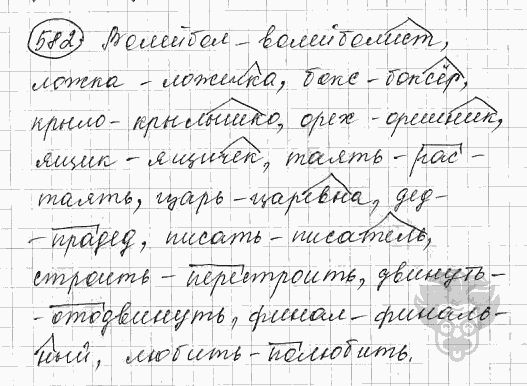 582. Волейбол – волейболист,
ложка – ложечка, бокс – боксёр,
крыло – крылышко, орех – орешник,
ящик – ящичек, таять – рас-
таять, царь – царевна, дед –
– прадед, писать – писатель,
строить – перестроить, двинуть –
– отодвинуть, финал – финаль-
ный, любить – полюбить.